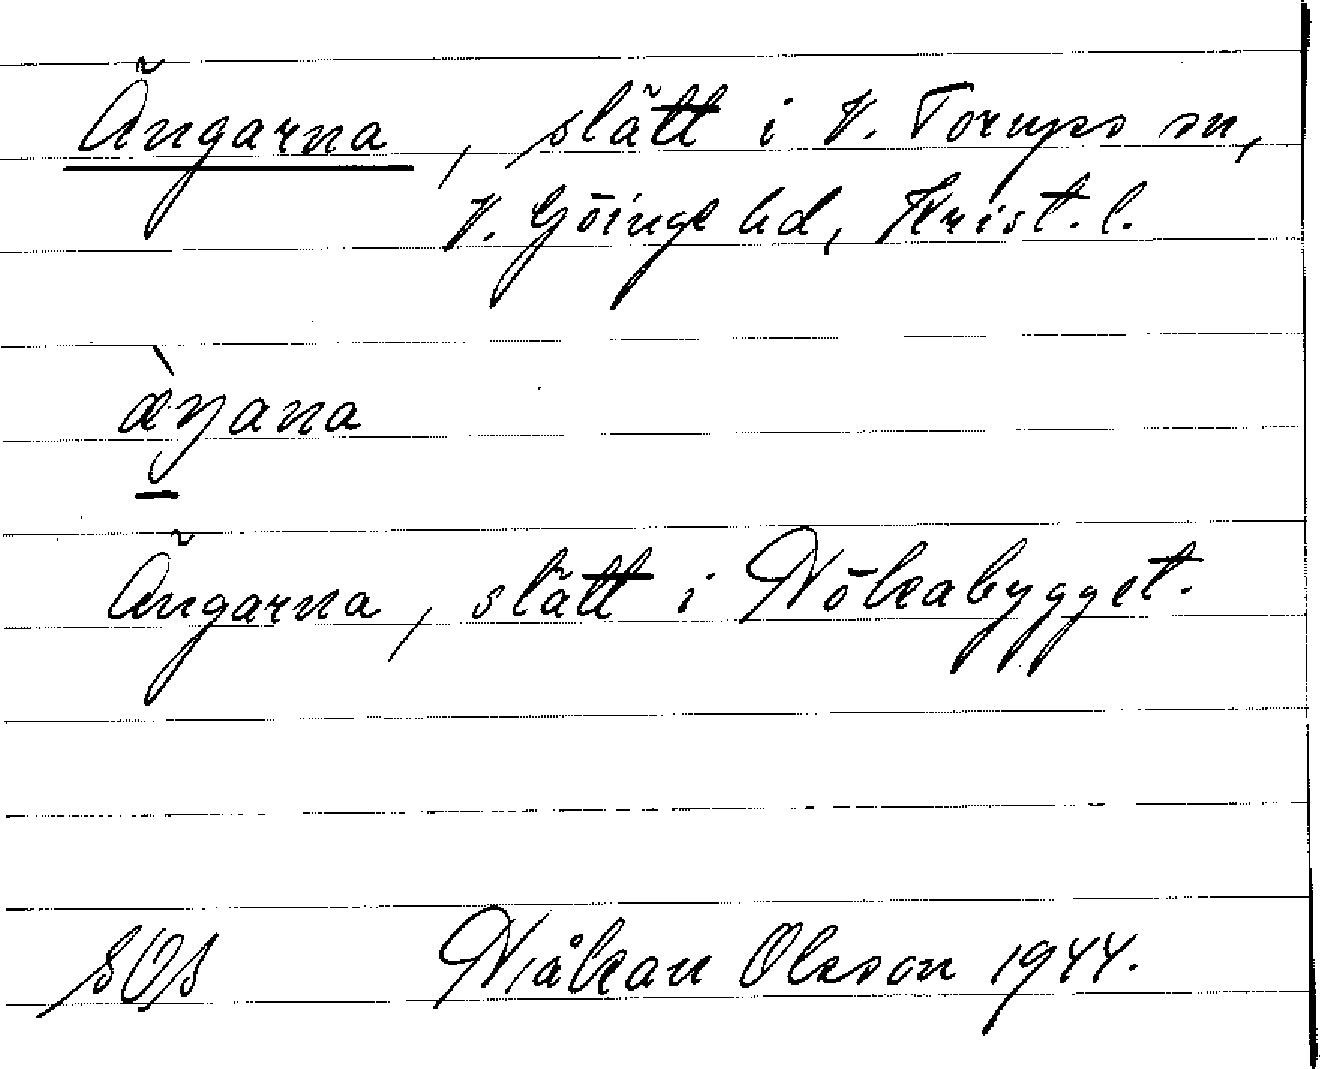 Ängarna, slätt i V. Torups sn,
V. Göinge hd, Krist. l.
æ̀ŋana
Ängarna, slätt i Hökabygget.
SOS Håkan Olsson 1944.